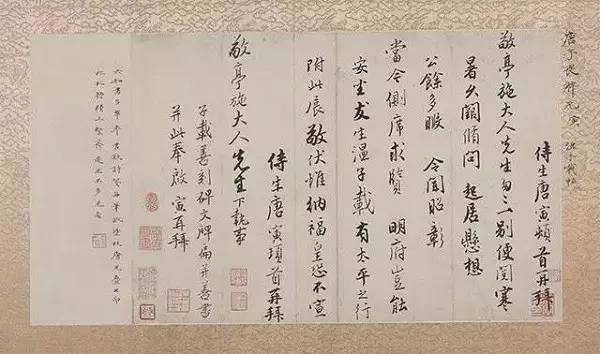 侍生唐寅頓首再拜
敬亭施大人先生匆匆一別便閱寒
暑久闊脩問 起居懸想
公餘多暇 令聞昭彰
當今側席求賢 明府豈能
安坐友生溫子載有太平之行
附此展敬伏惟納福皇恐不宣
侍生唐寅頓首再拜
敬亭施大人先生下執事
子載善刻碑文牌扁并善書
并此奉啟寅再拜